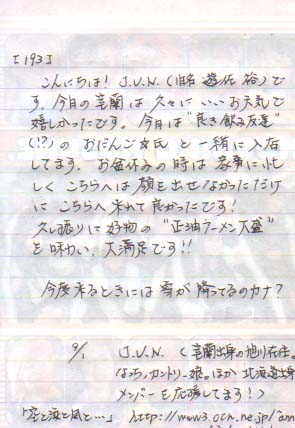 [193]
こんにちは! J.V.N.(旧名 遊佐 裕)で
す。今日の室蘭は久々にいいお天気で
嬉しかったです。今日は"良き飲み友達"
(!?)のおだんご女氏と一緒に入店
してます。お盆休みの時は家事に忙
しくこちらへは顔を出せなかっただけ
にこちらへ来れて良かったです!
久し振りに好物の"正油ラーメン大盛"
を味わい、大満足です!!
今度来るときには雪が降ってるのカナ?
9/1 J.V.N.(室蘭出身の旭川在住。
なっち、カントリー娘。ほか 北海道出身
メンバーを応援してます!)
「空と涙と風と…」 http://www3.ocn.ne.jp/~ann